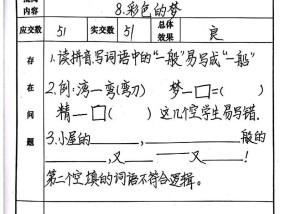 内容
8.彩色的梦
应交数 51 实交数 51 总体效果 良
存在问题
1.读拼音写词语中的“一般”易写成“一船”
2.例:湾—弯(弯刀) 梦—□=( )
精—□( )这几个空学生易写错.
3.小屋的______,______般的
______,又______又______!
第二个空填的词语不符合逻辑。